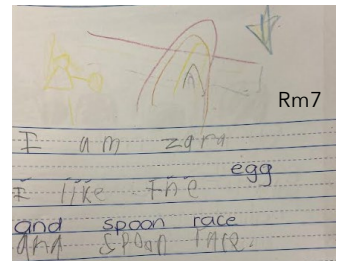 Rm7
I am zara
egg
I like the
and spoon race
and spoon race.